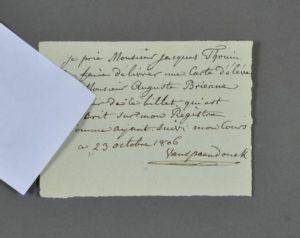 je prie Monsieur Jacques Thouin
faire délivrer une Carte d'élève
Monsieur Auguste Brienne
le billet qu'est
mon Registre
ayant suivi mon Cours
ce 23 octobre 1806
Vanspaendonck